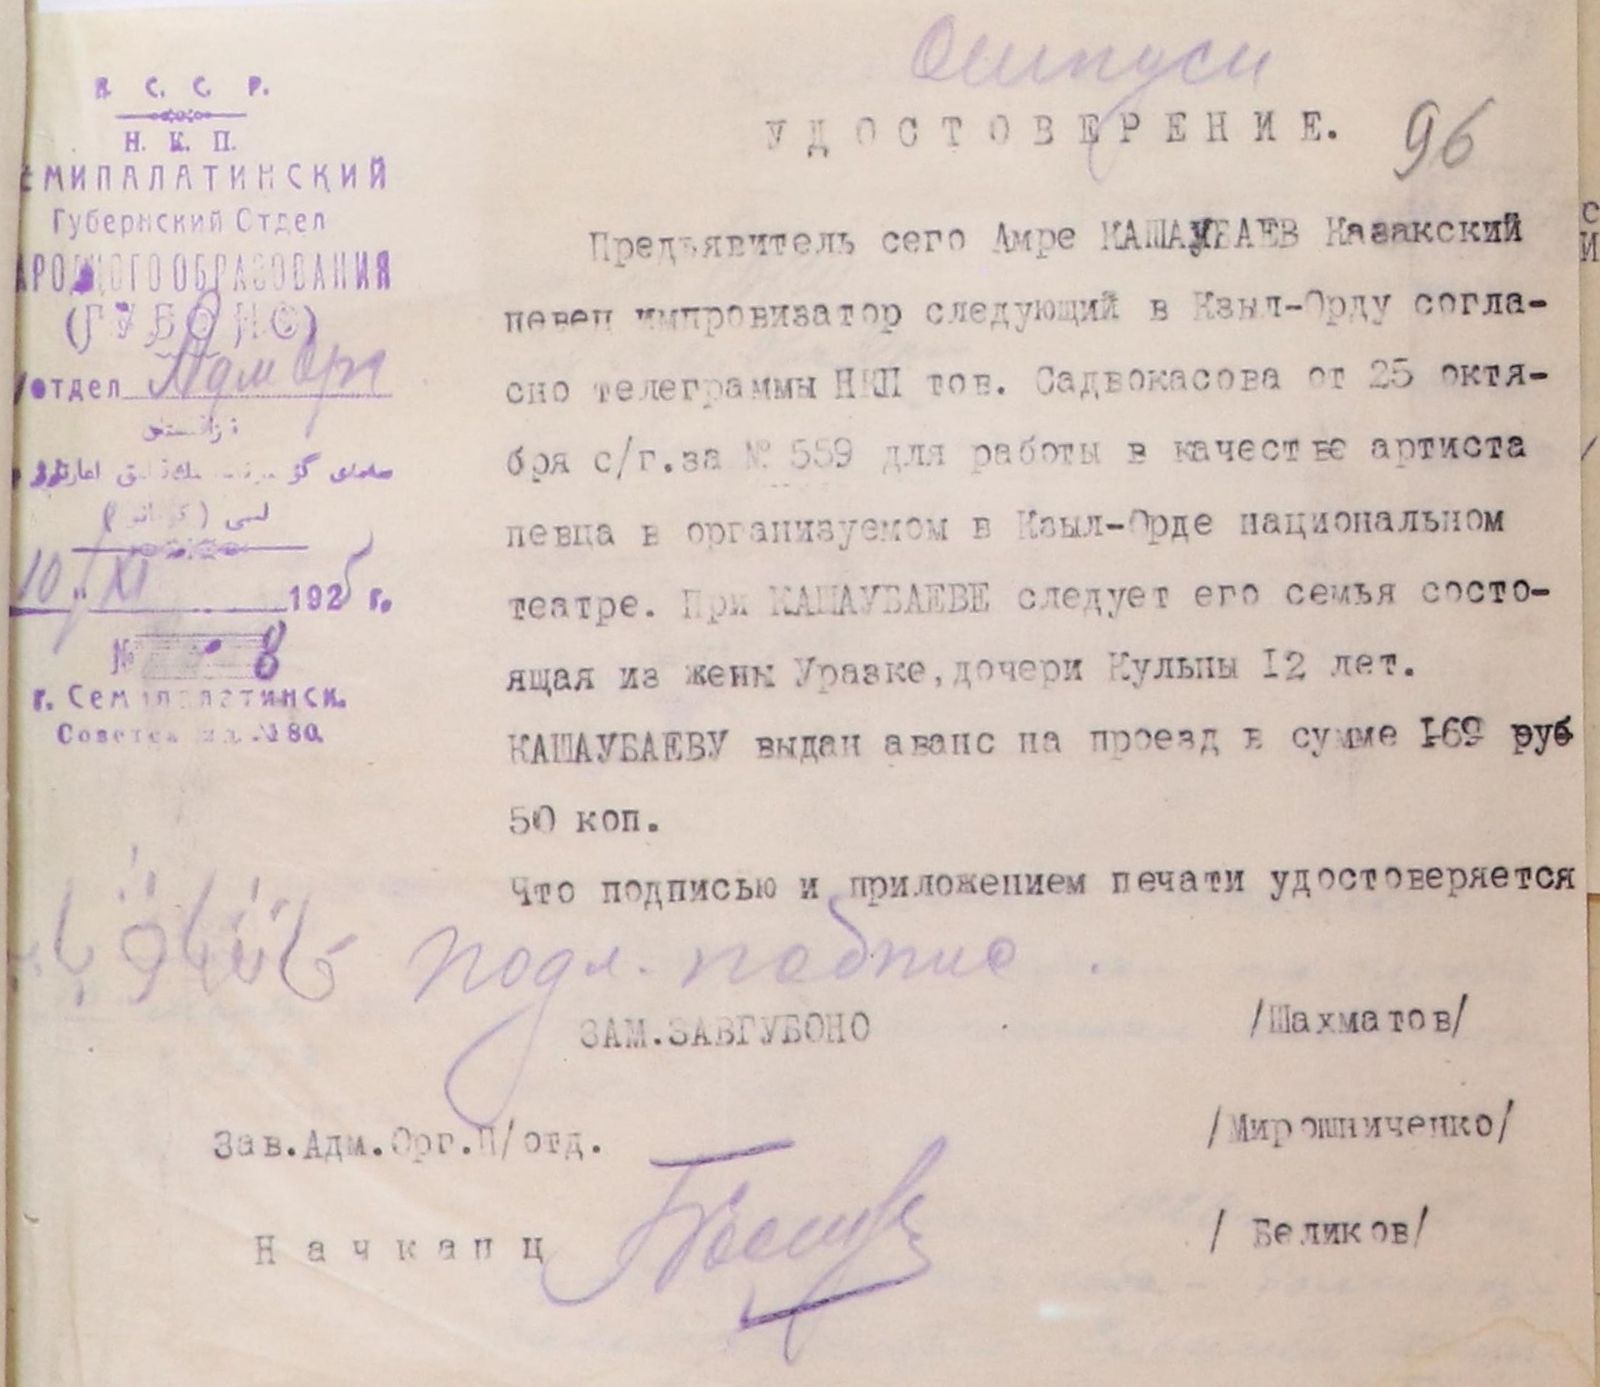 К. С. С. Р.
Н. К. П.
МИПАЛАТИНСКИЙ
Губернский Отдел
АРОДНОГО ОБРАЗОВАНИЯ
(ГУБОНО)
отдел Адм Орг
10 " XI 1925 г.
№ 8
г. Семипалатинск.
Советск ул. №80.
Отпуск
УДОСТОВЕРЕНИЕ.
96
Предъявитель сего Амре КАШАУБАЕВ Казакский
певец импровизатор следующий в Кзыл-Орду согла-
сно телеграммы НКП тов. Садвокасова от 25 октя-
бря с/г.за № 559 для работы в качестве артиста
певца в организуемом в Кзыл-Орде национальном
театре. При КАШАУБАЕВЕ следует его семья состо-
ящая из жены Уразке,дочери Кульпы I2 лет.
КАШАУБАЕВУ выдан аванс на проезд в сумме I69 руб
50 коп.
Что подписью и приложением печати удостоверяется
подл. подпис
ЗАМ.ЗАВГУБОНО /Шахматов/
Зав.Адм.Орг.П/отд. /Мирошниченко/
Начканц / Беликов/